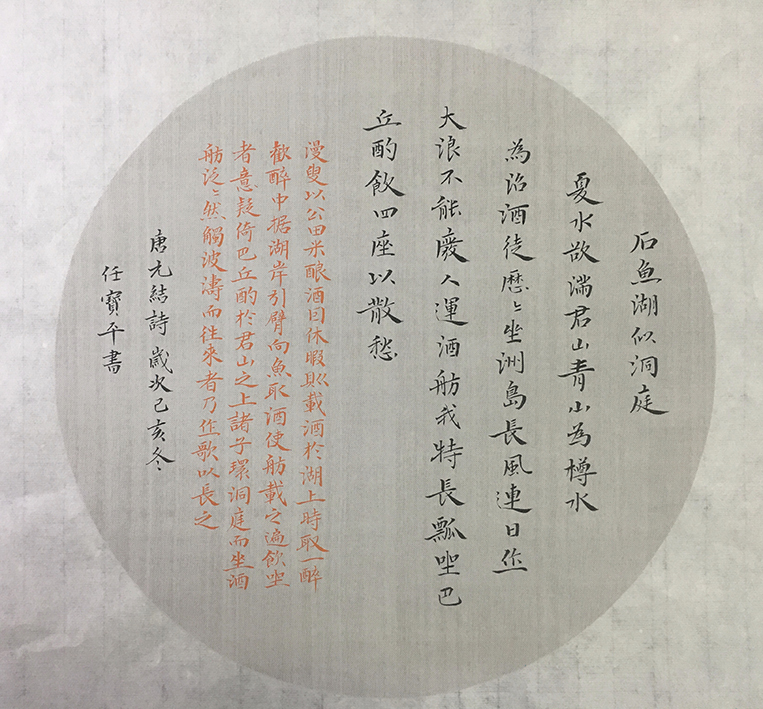 石魚湖似洞庭
夏水欲滿君山青山為樽水
為沼酒徒歷〻坐洲島長風連日作
大浪不能廢人運酒舫我持長瓢坐巴
丘酌飲四座以散愁
漫叟以公田米酿酒因休暇則載酒於湖上時取一醉
歡醉中据湖岸引臂向魚取酒使舫載之遍飲坐
者意疑倚巴丘酌於君山之上諸子環洞庭而坐酒
舫泛〻然觸波濤而往來者乃作歌以長之
唐元結詩歲次己亥冬
任寶平書